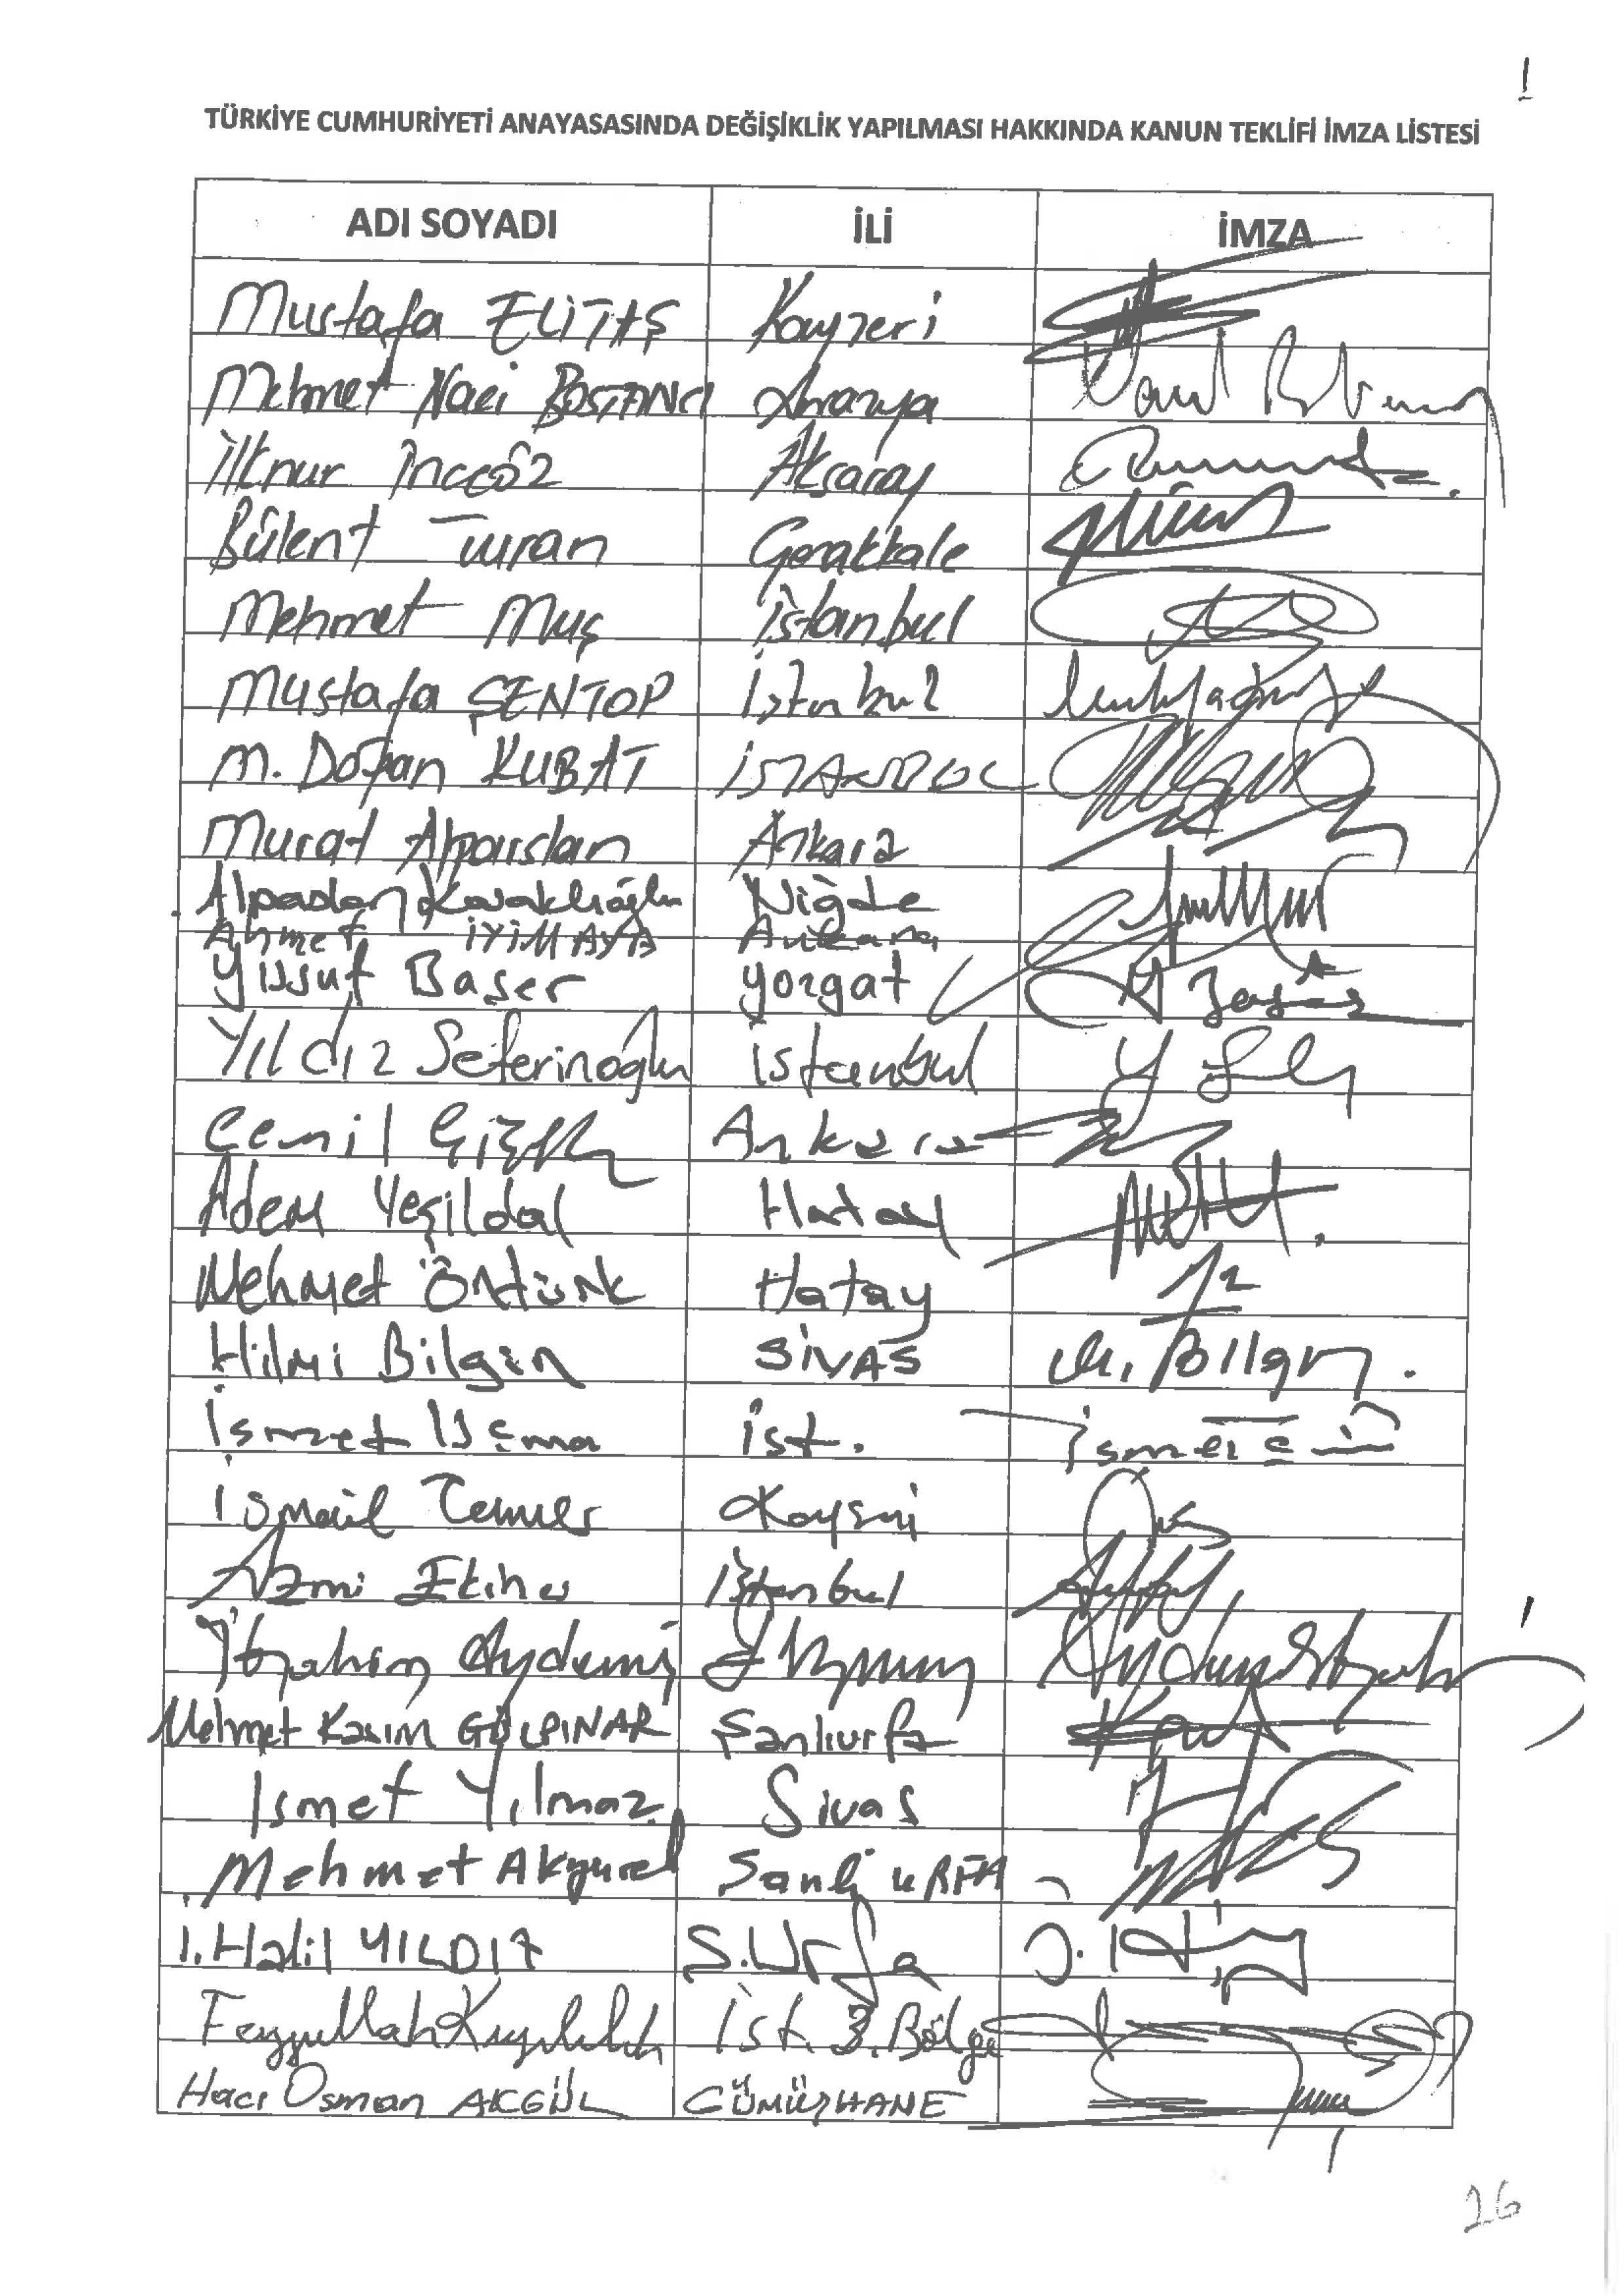 TÜRKİYE CUMHURİYETİ ANAYASASINDA DEĞİŞİKLİK YAPILMASI HAKKINDA KANUN TEKLİFİ İMZA LİSTESİ
ADI SOYADI İLİ İMZA
Mustafa ELİTAŞ Kayseri
Mehmet Naci BOSTANCI Amasya
İlknur İnceöz Aksaray
Bülent Turan Çanakkale
Mehmet Muş İstanbul
Mustafa ŞENTOP İstanbul
M. Doğan KUBAT İSTANBUL
Murat Alparslan Ankara
Alpaslan Kavaklıoğlu Niğde
Ahmet İYİMAYA Ankara
Yusuf Başer Yozgat
Yıldız Seferinoğlu İstanbul
Cemil Ankara
Adem Yeşildal Hatay
Mehmet Öntürk Hatay
Hilmi Bilgin SİVAS M. Bilgin
İsmet Uçma İst. İsmet
İsmail Tamer Kayseri
Azmi Ekinci İstanbul
İbrahim Aydemir Erzurum
Mehmet Kasım GÜLPINAR Şanlıurfa
İsmet Yılmaz Sivas
Mehmet Akyürek Şanlı URFA
İ. Halil YILDIZ Ş.Urfa
Feyzullah Kıyıklık İst. 3. Bölge
Hacı Osman AKGÜL GÜMÜŞHANE
26